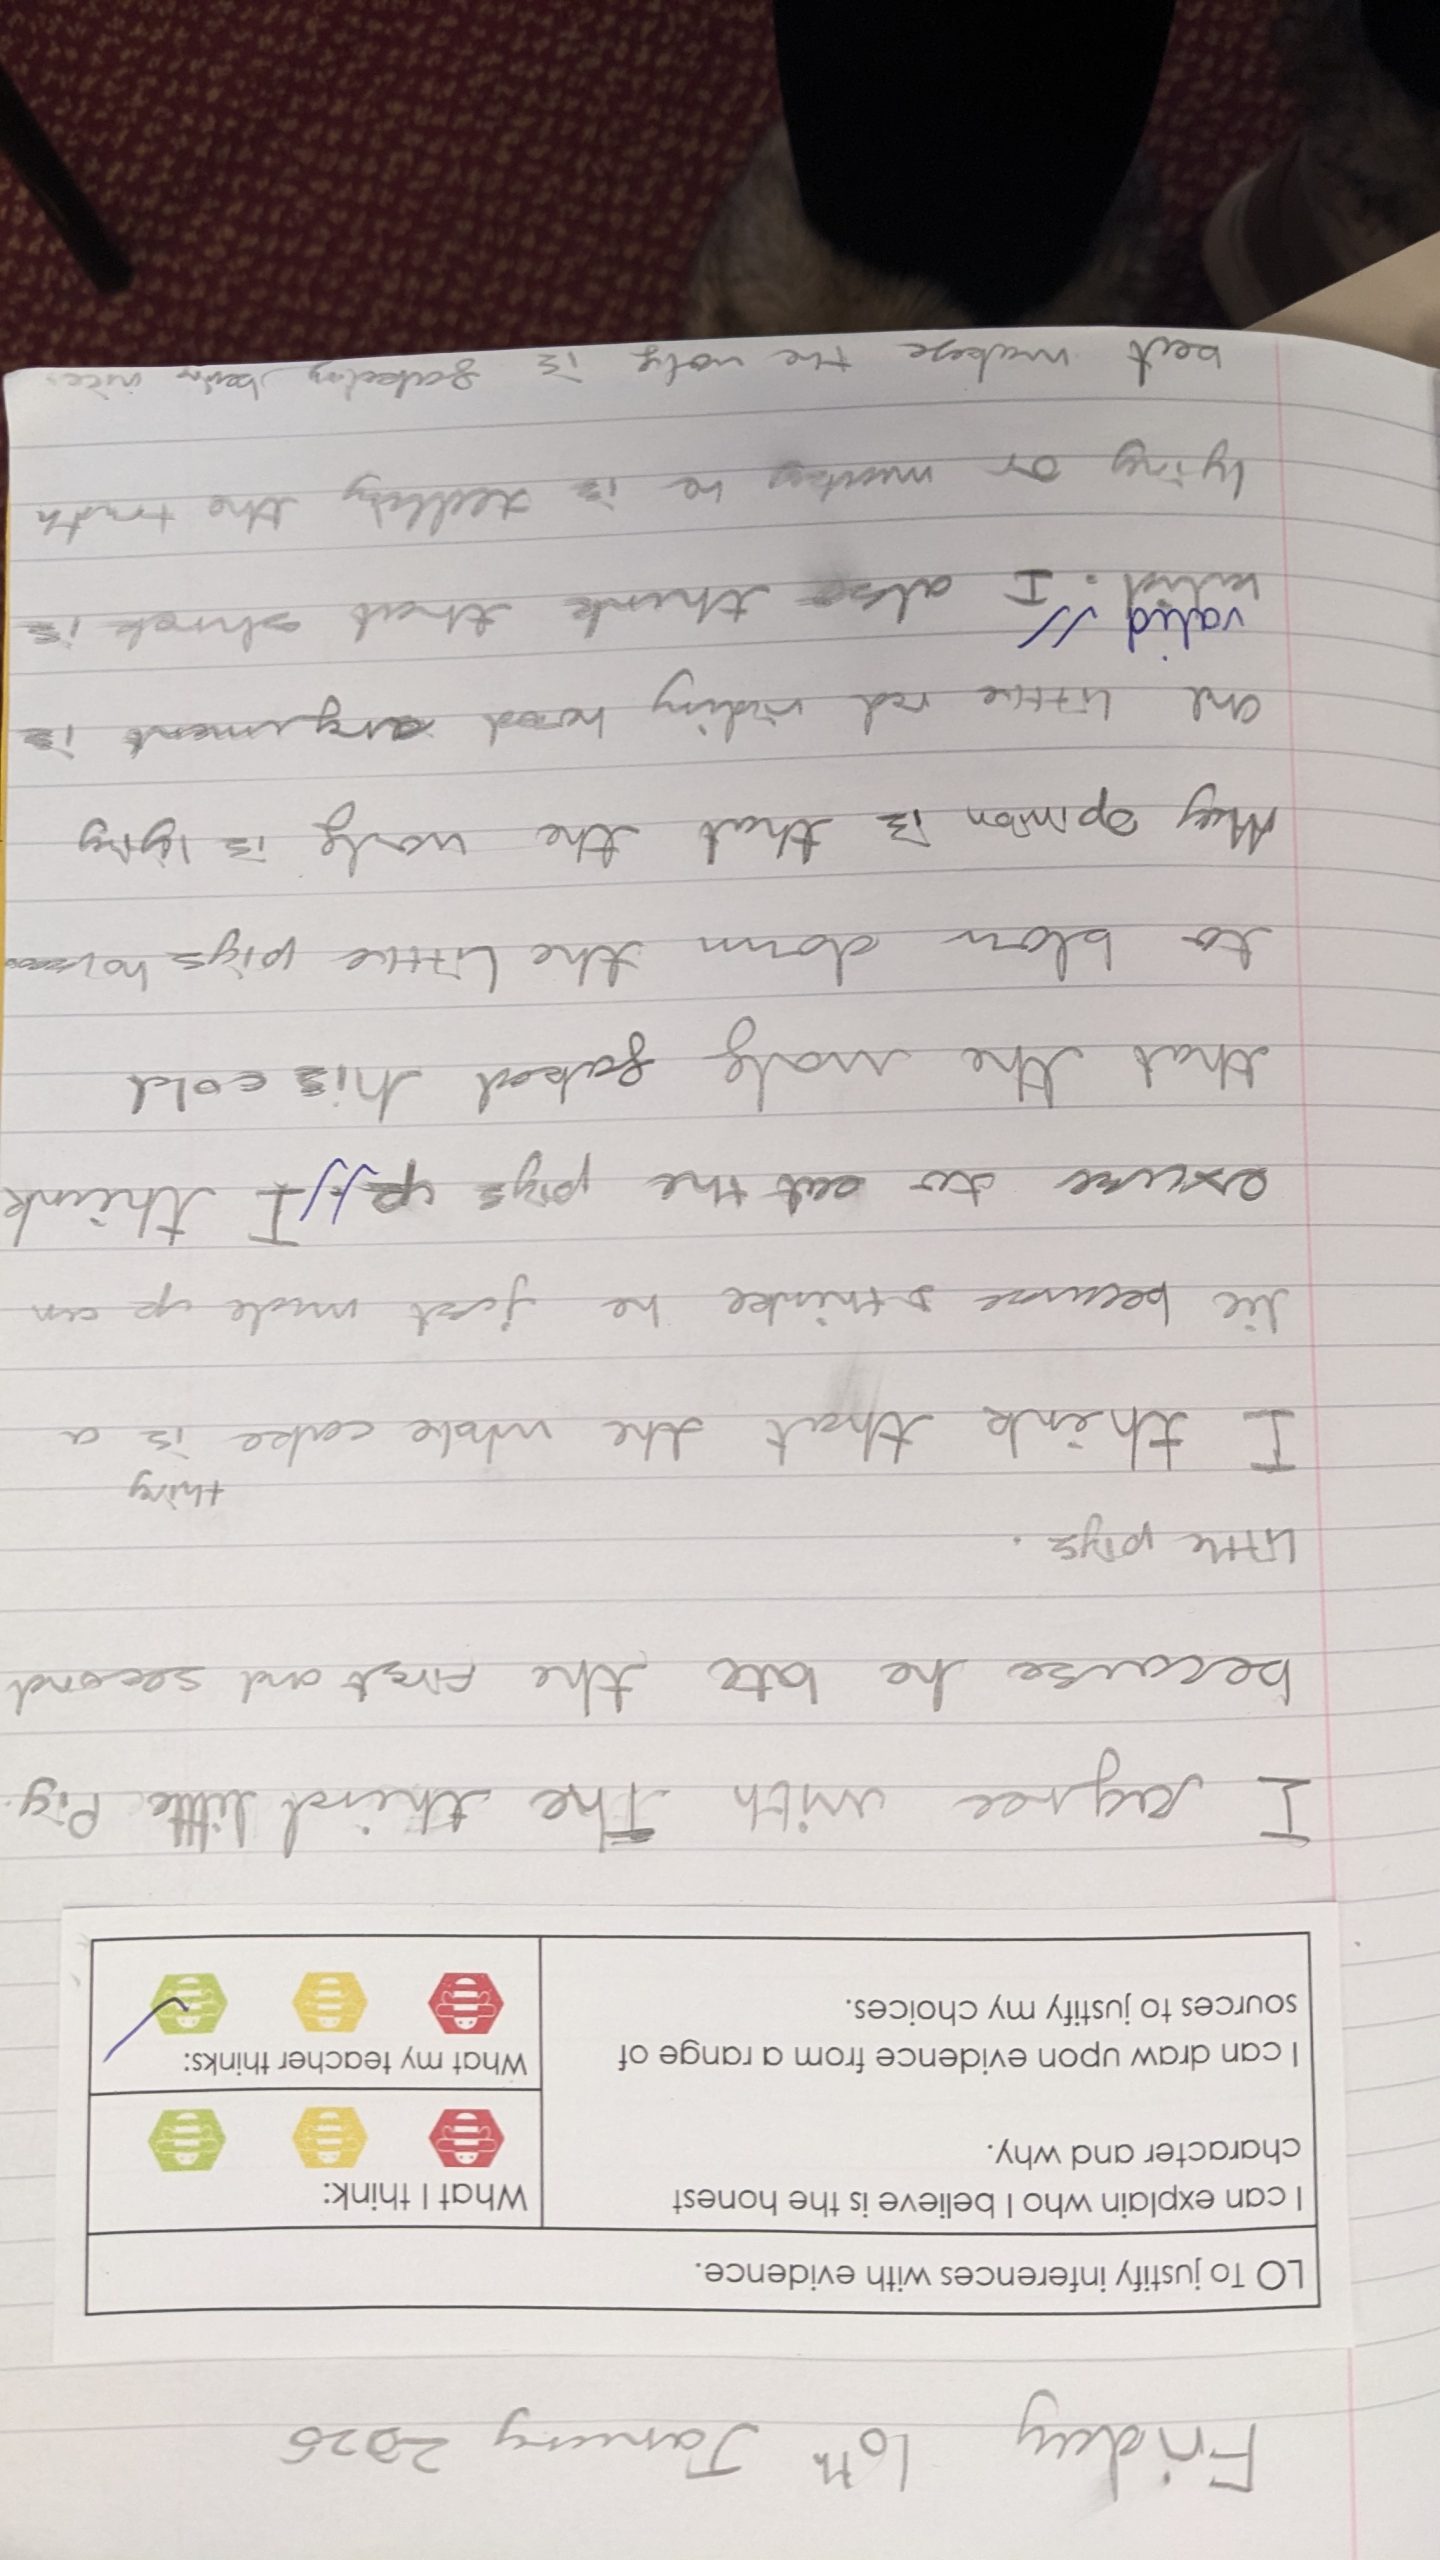 Friday 10th Janury 2025
LO To justify inferences with evidence.
I can explain who I believe is the honest
character and why.
I can draw upon evidence from a range of
sources to justify my choices.
What I think:
What my teacher thinks:
I agree with The third little Pig.
because he ate the first and second
little pigs.
thing
I think that the whole cake is a
lie because thinke he just made up an
excuse to eat the pigs up. // I think
that the wolf faked his cold
to blow down the little pigs
My opinion is that the wolf is lying
and little red riding hood argument is
valid //
valid. I also think that shrek is
lying or he is telling the truth
the wolf is being nice.